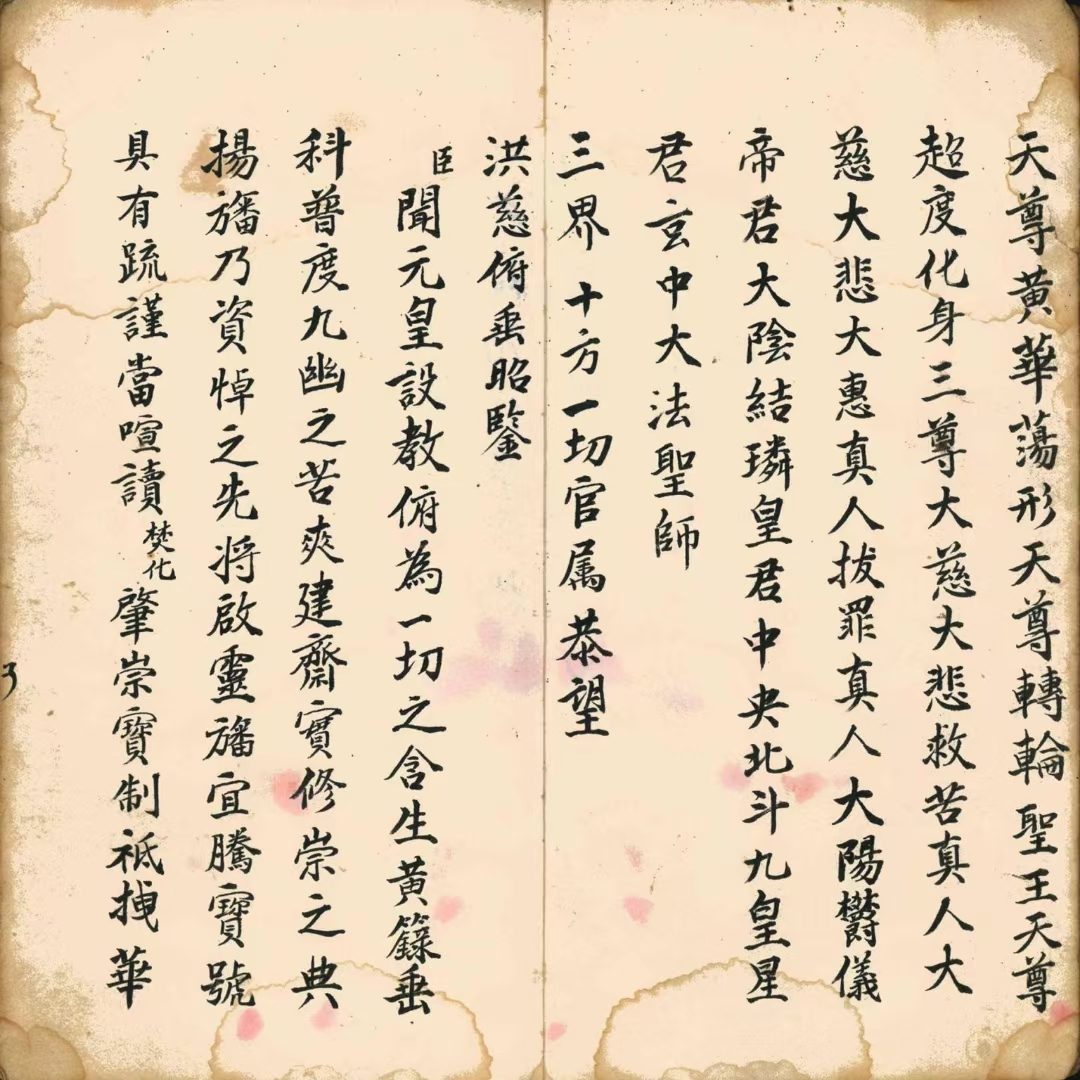 天尊黃華蕩形天尊轉輪聖王天尊
超度化身三尊大慈大悲救苦真人大
慈大悲大惠真人拔罪真人大陽鬱儀
帝君大陰結璘皇君中央北斗九皇星
君玄中大法聖師
三界十方一切官属恭望
洪慈俯垂昭鑒
臣聞元皇設教俯為一切之含生黃籙垂
科普度九幽之苦爽建齋實修崇之典
揚旛乃資悼之先将啟靈旛宜騰寶號
具有䟽謹當喧讀焚化肇崇寶制祗拽華